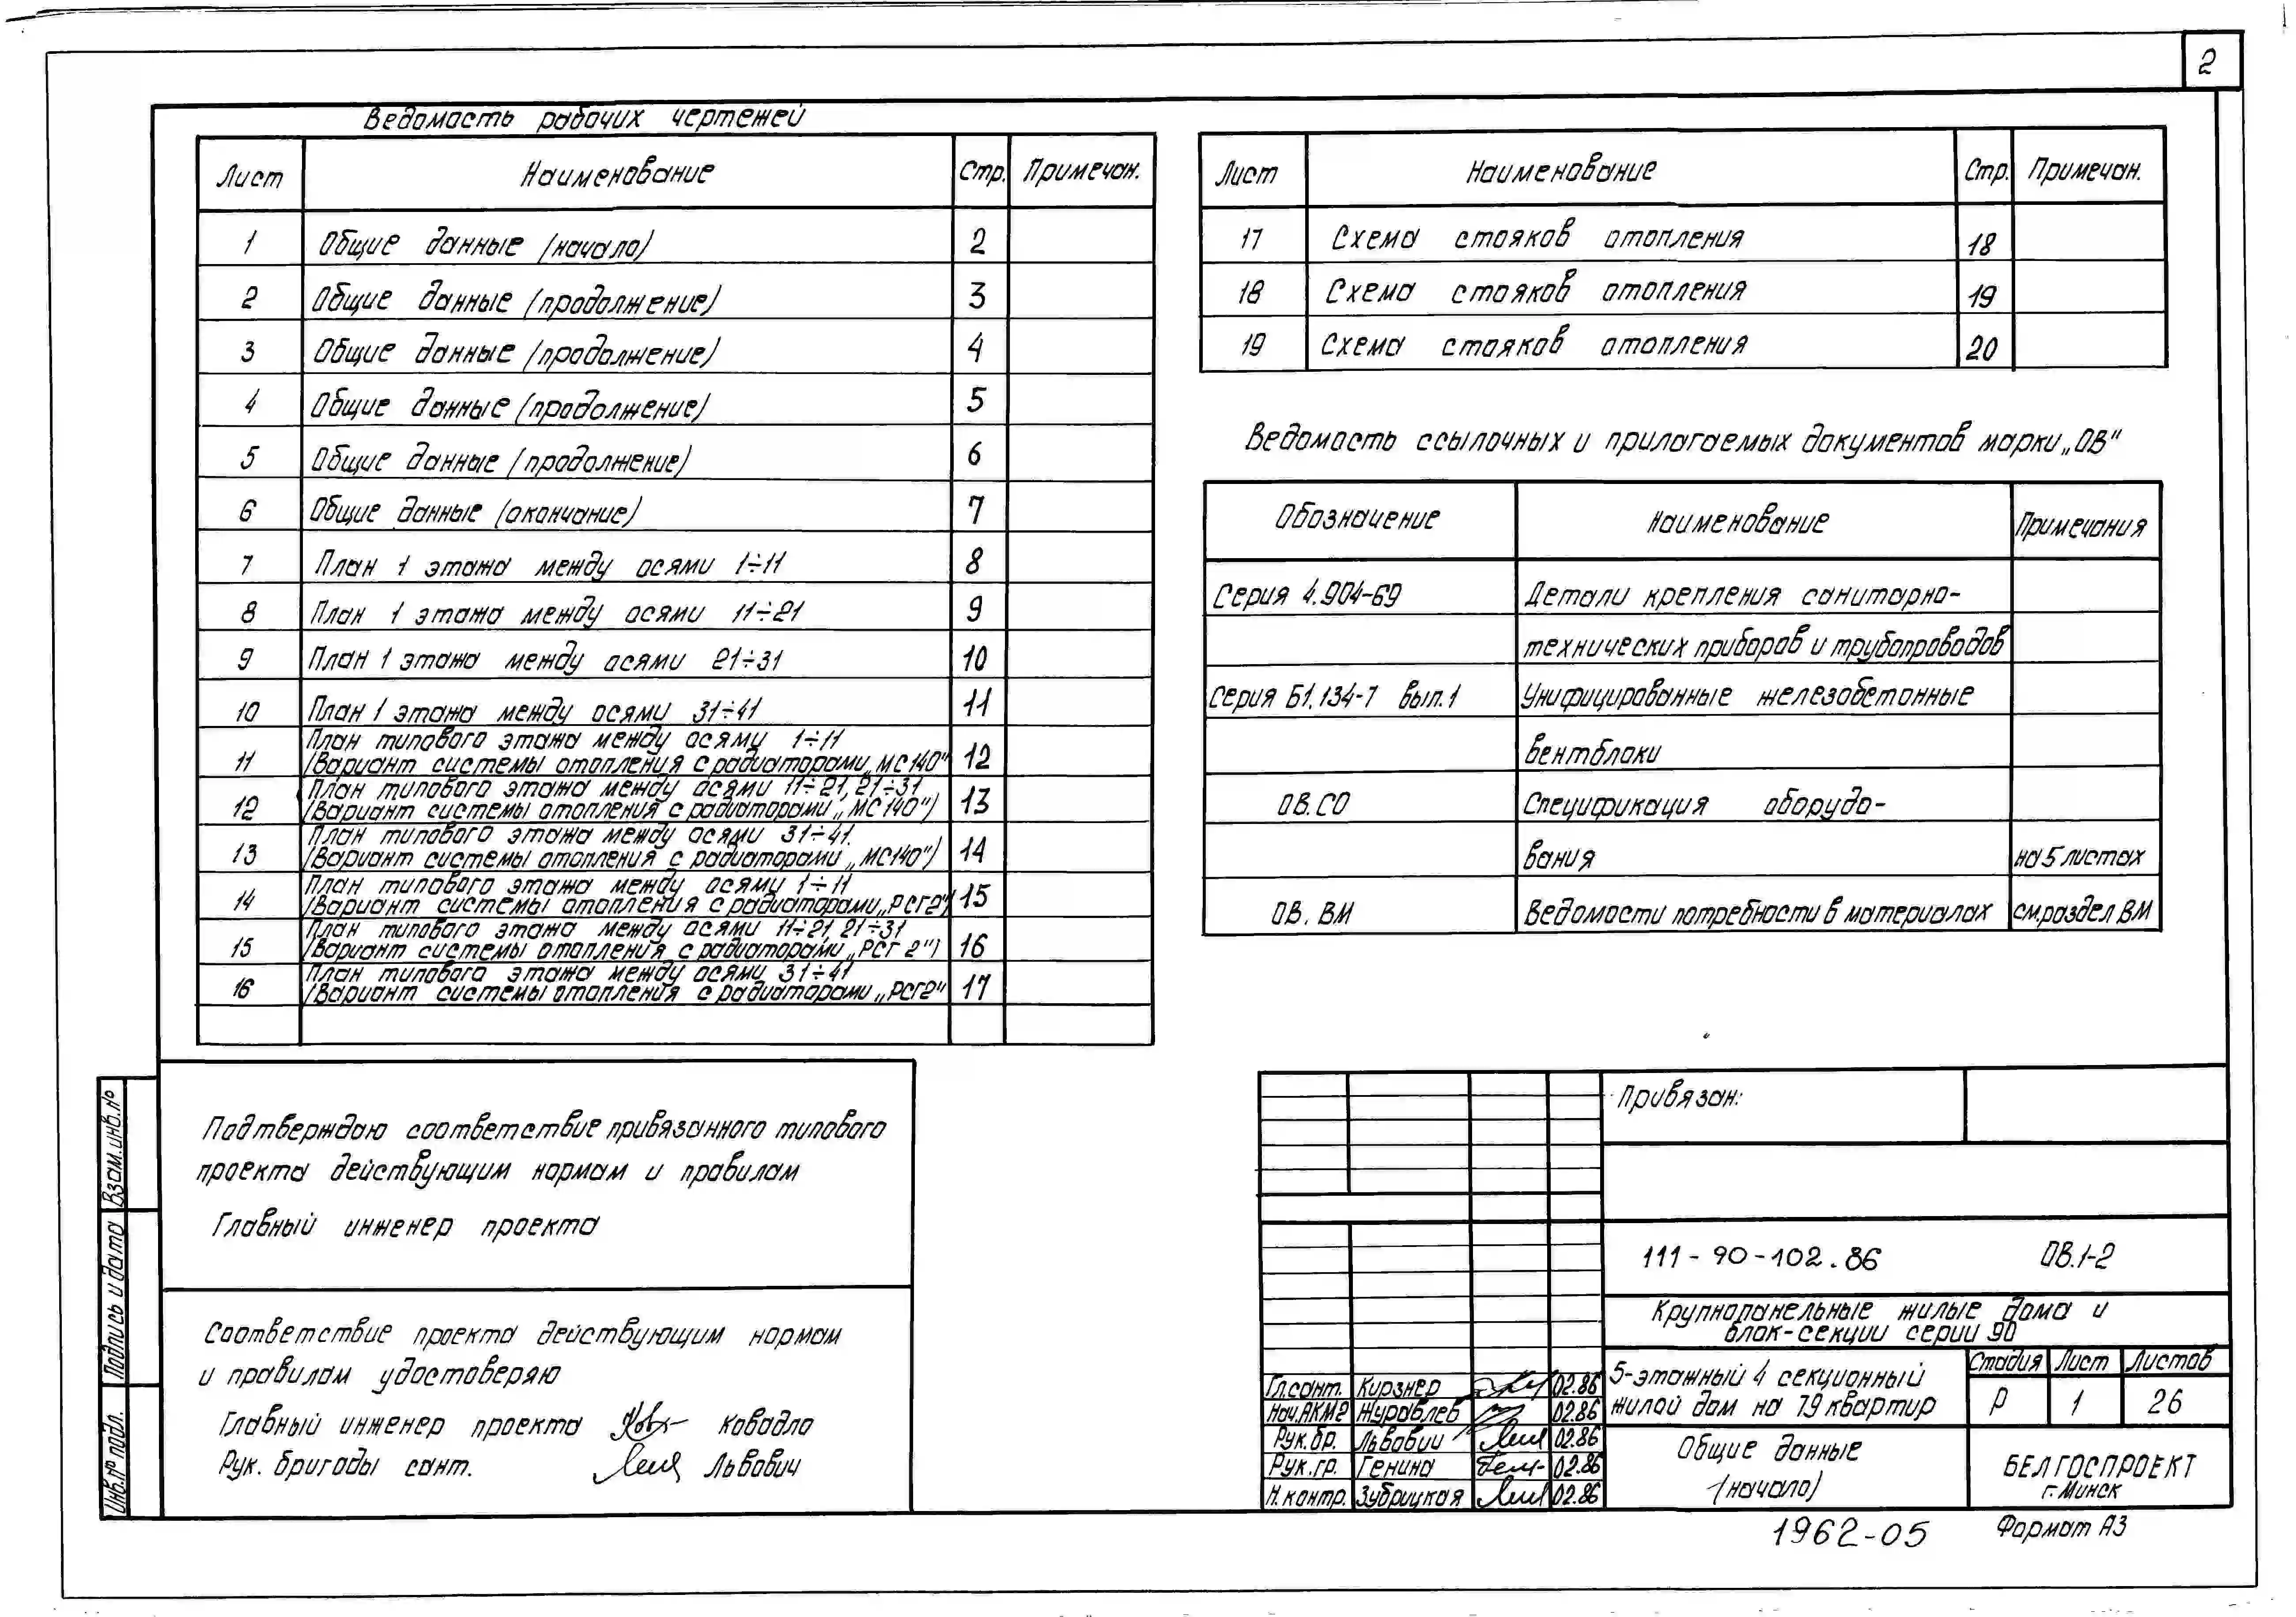 2
Ведомость рабочих чертежей
Лист Наименование Стр. Примечан.
1 Общие данные (начало) 2
2 Общие данные (продолжение) 3
3 Общие данные (продолжение) 4
4 Общие данные (продолжение) 5
5 Общие данные (продолжение) 6
6 Общие данные (окончание) 7
7 План 1 этажа между осями 1÷11 8
8 План 1 этажа между осями 11÷21 9
9 План 1 этажа между осями 21÷31 10
10 План 1 этажа между осями 31÷41 11
План типового этажа между осями 1÷11
11 (Вариант системы отопления с радиаторами „МС140" 12
План типового этажа между осями 11÷21, 21÷31
12 (Вариант системы отопления с радиаторами „МС140") 13
План типового этажа между осями 31÷41.
13 (Вариант системы отопления с радиаторами „МС140") 14
План типового этажа между осями 1÷11
14 (Вариант системы отопления с радиаторами „РСГ2") 15
План типового этажа между осями 11÷21, 21÷31
15 (Вариант системы отопления с радиаторами „РСГ 2") 16
План типового этажа между осями 31÷41
16 (Вариант системы отопления с радиаторами „РСГ2" 17
Лист Наименование Стр. Примечан.
17 Схема стояков отопления 18
18 Схема стояков отопления 19
19 Схема стояков отопления 20
Ведомость ссылочных и прилагаемых документов марки „ОВ"
Обозначение Наименование Примечания
Серия 4.904-69 Детали крепления санитарно-
технических приборов и трубопроводов
Серия Б1.134-7 вып.1 Унифицированные железобетонные
вентблоки
ОВ.СО Спецификация оборудо-
вания на 5 листах
ОВ. ВМ Ведомости потребности в материалах см.раздел ВМ
Подтверждаю соответствие привязанного типового
проекта действующим нормам и правилам
Главный инженер проекта
Соответствие проекта действующим нормам
и правилам удостоверяю
Главный инженер проекта Ковадло
Рук. бригады сант. Львович
Взам.инв.№
Подпись и дата
Инв.№ подл.
Привязан:
111-90-102.86 ОВ.1-2
Крупнопанельные жилые дома и
блок-секции серии 90
5-этажный 4 секционный
жилой дом на 79 квартир
Стадия Лист Листов
Р 1 26
Гл.сант. Кирзнер 02.86
Нач.АКМ2 Журавлев 02.86
Рук.бр. Львович 02.86
Рук.гр. Генина 02.86
Н.контр. Зубрицкая 02.86
Общие данные
(начало)
БЕЛГОСПРОЕКТ
г.Минск
1962-05
Формат А3